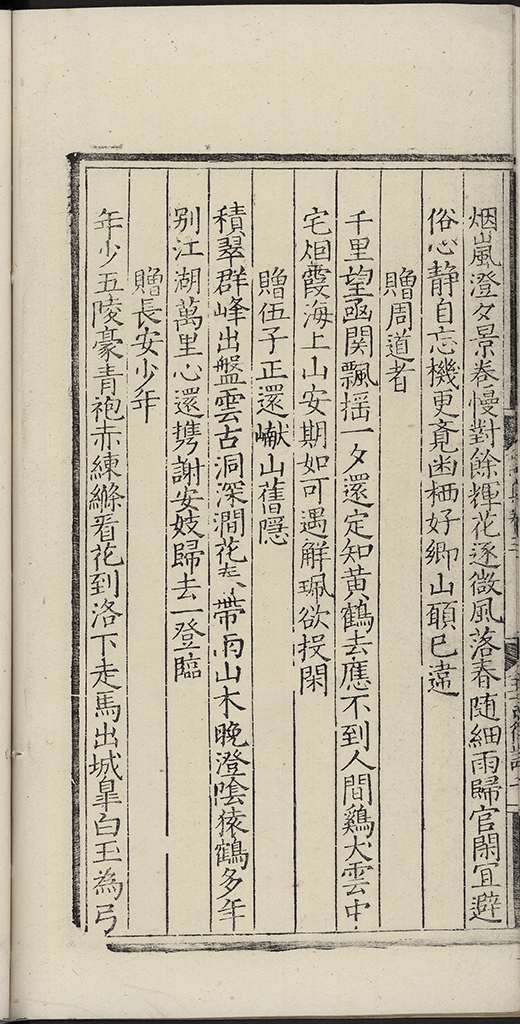 烟嵐澄夕景卷慢對餘輝花逐微風落春随細雨歸官閑宜避
俗心靜自忘機更覔幽栖好鄉山願已違
贈周道者
千里望凾関飄揺一夕還定知黄鶴去應不到人間鷄犬雲中
宅烟霞海上山安期如可遇解珮欲投閑
贈伍子正還𪩘山舊隱
積翠群峰出盤雲古洞深澗花帶雨山木晚澄陰猿鶴多年
别江湖萬里心還携謝安妓歸去一登臨
贈長安少年
年少五陵豪青袍赤練縧看花到洛下走馬出城臯白玉為弓